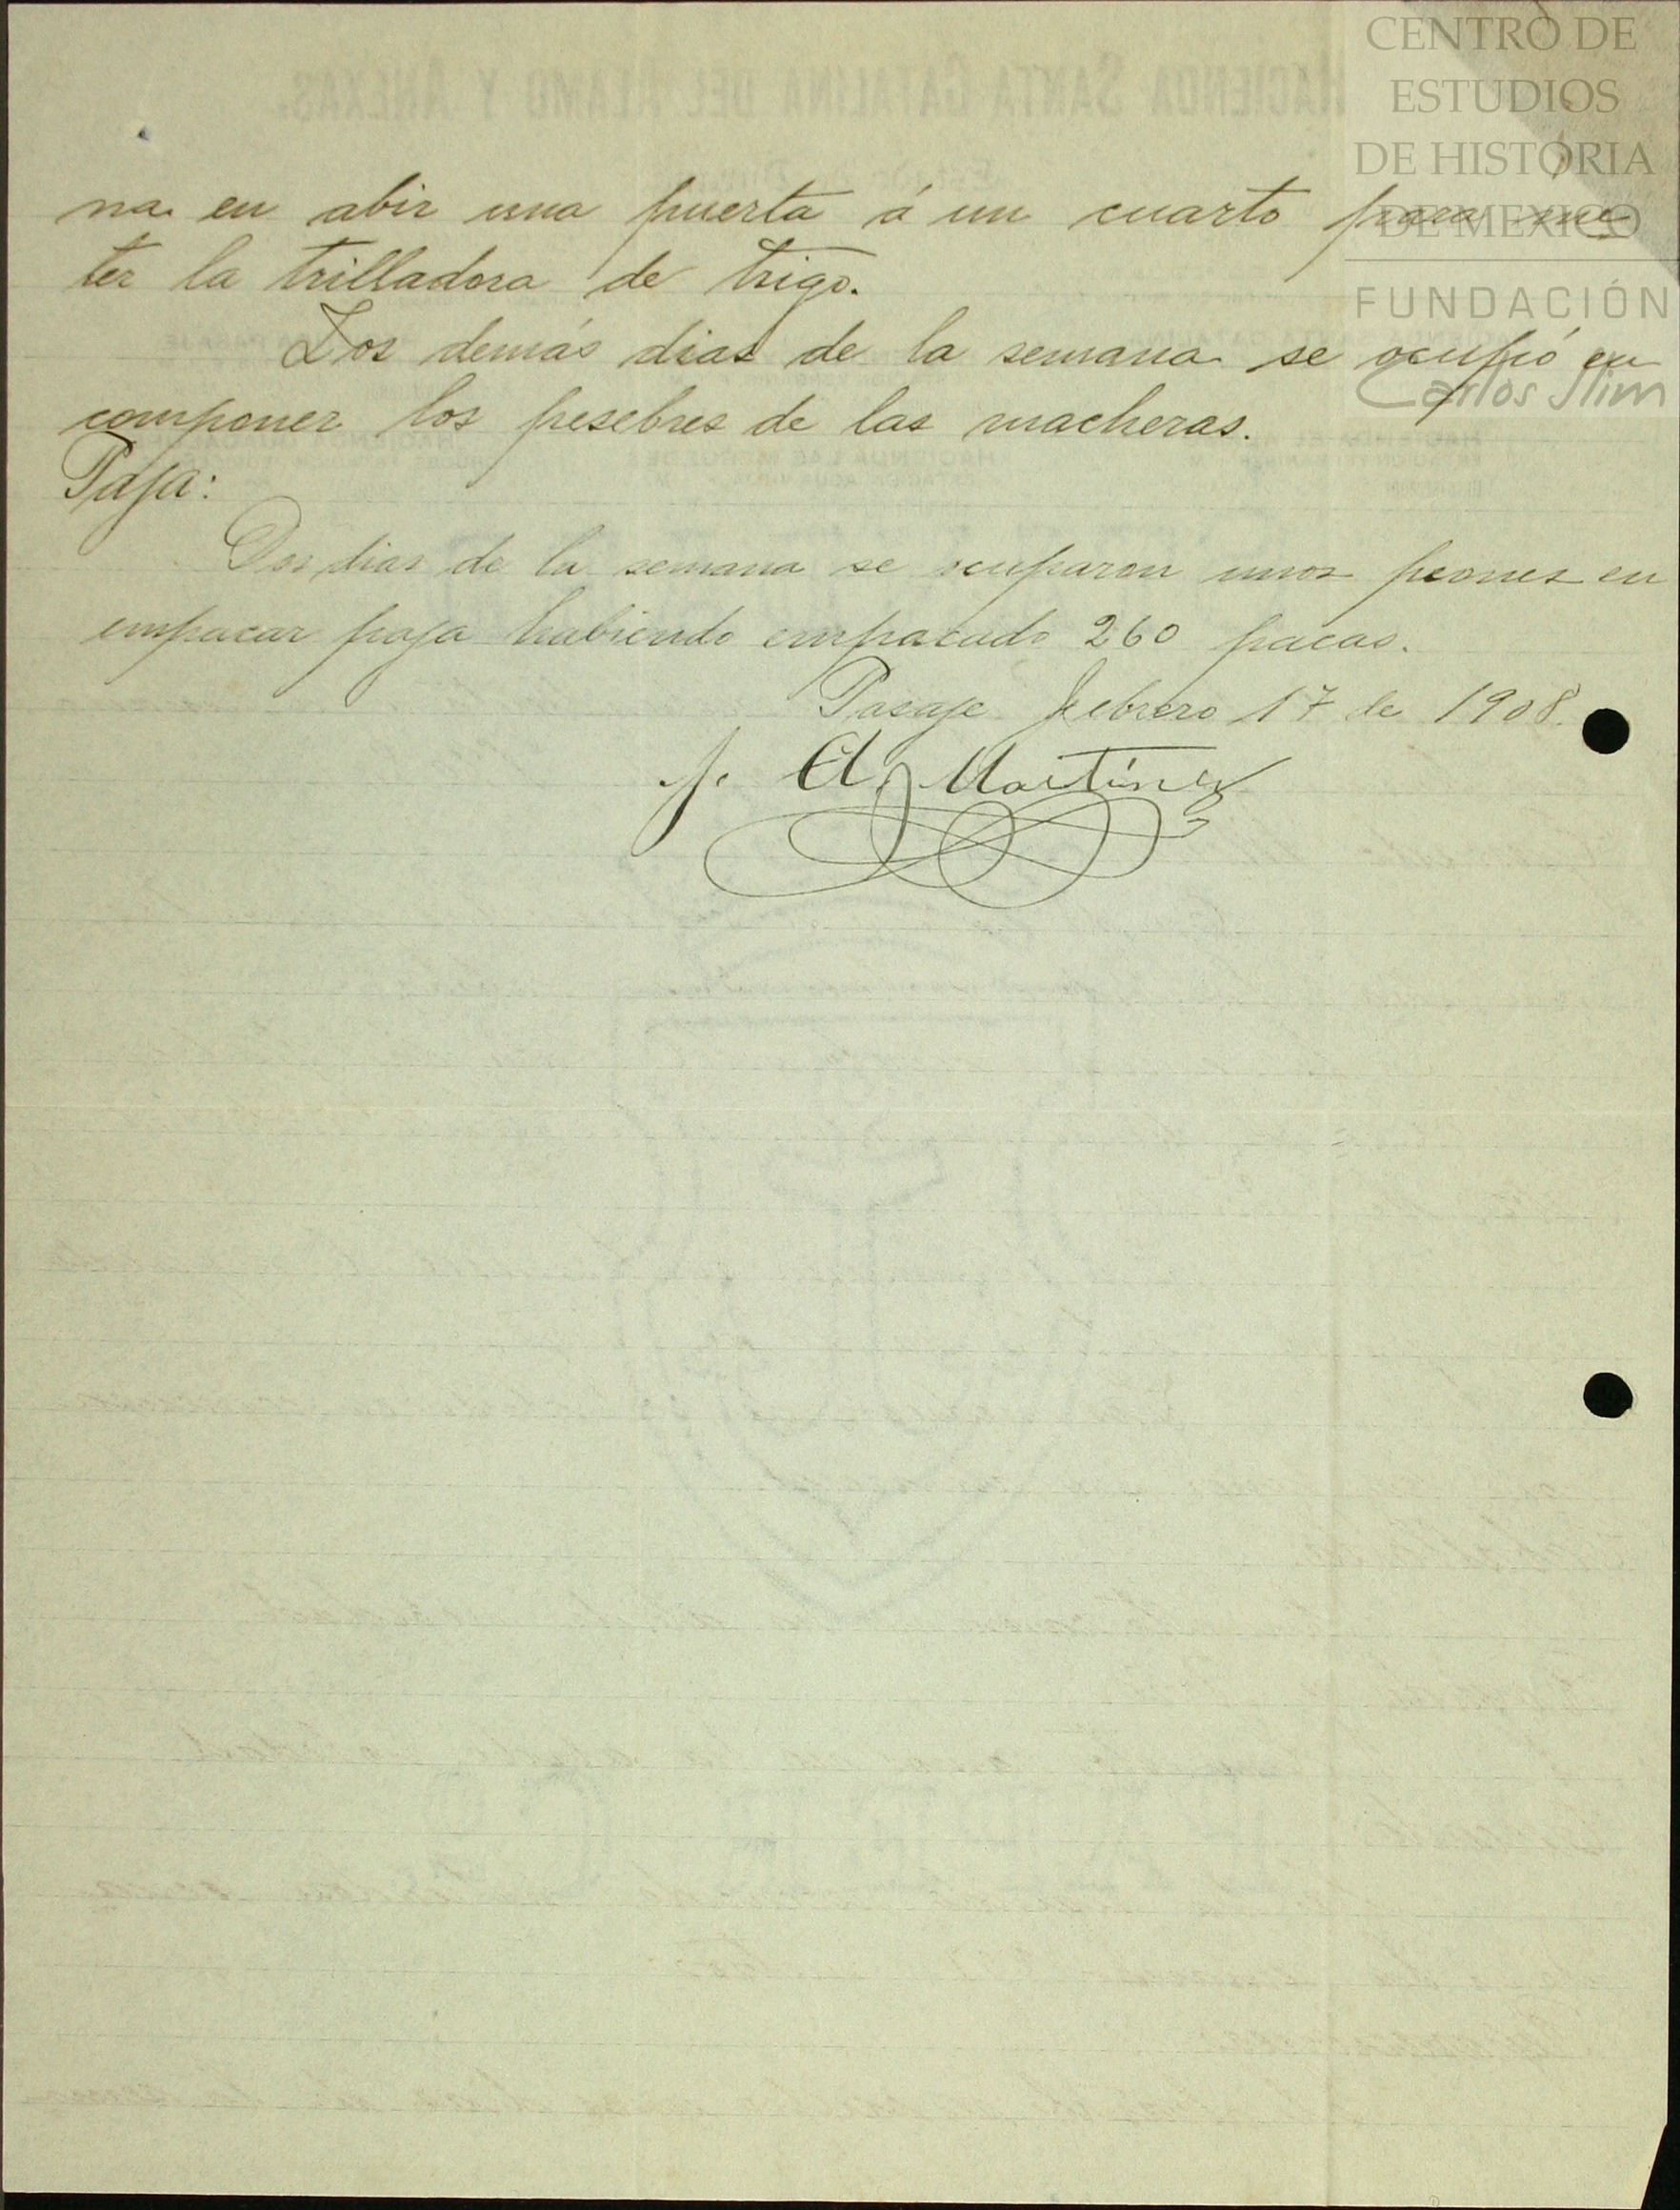 CENTRO DE
ESTUDIOS
DE HISTORIA
DE MEXICO
FUNDACIÓN
Carlos Slim
na en abir una puerta á un cuarto para me
ter la trilladora de trigo.
Los demás dias de la semana se ocupó en
componer los pesebres de las macheras.
Paja:
Dos dias de la semana se ocuparon unos peones en
empacar paja habiendo empacado 260 pacas.
Pasaje febrero 17 de 1908.
Martínez